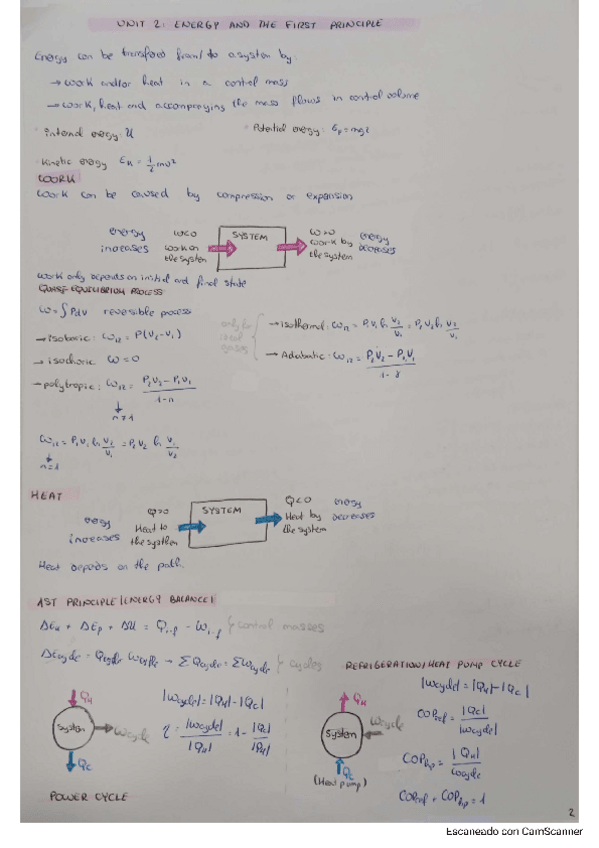 UNIT 2: ENERGY AND THE FIRST PRINCIPLE
Energy can be transfered from/to a system by:
→ work and/or heat in a control mass
→ work, heat and accompanying the mass flows in control volume
· internal energy: U
· Potential energy: Ep = mgz
· kinetic energy Ek = 1/2 mv²
WORK
Work can be caused by compression or expansion
energy increases
W<0 work on the system
SYSTEM
W>0 work by the system
energy decreases
Work only depends on initial and final state
QUASI-EQUILIBRIUM PROCESS
W = ∫ PdV reversible process
→ isobaric: W12 = P(V2-V1)
→ isochoric W = 0
→ polytropic: W12 = (P2V2 - P1V1)/(1-n)
n≠1
W12 = P1V1 ln V2/V1 = P2V2 ln V2/V1
n=1
only for ideal gasses
→ isothermal: W12 = P1V1 ln V2/V1 = P2V2 ln V2/V1
→ Adiabatic: W12 = (P2V2 - P1V1)/(1-γ)
HEAT
energy increases
Q>0 Heat to the system
SYSTEM
Q<0 Heat by the system
energy decreases
Heat depends on the path.
1ST PRINCIPLE (ENERGY BALANCE)
ΔEk + ΔEp + ΔU = Qi-f - Wi-f } control masses
ΔEcycle = Qcycle - Wcycle → ΣQcycle = ΣWcycle } cycles
QH
System
Wcycle
QC
POWER CYCLE
|Wcycle| = |QH| - |QC|
η = |Wcycle|/|QH| = 1 - |QC|/|QH|
REFRIGERATION/HEAT PUMP CYCLE
QH
System
Wcycle
QC
(Heat pump)
|Wcycle| = |QH| - |QC|
COPref = |QC|/|Wcycle|
COPhp = |QH|/Wcycle
COPref + COPhp = 1
2
Escaneado con CamScanner